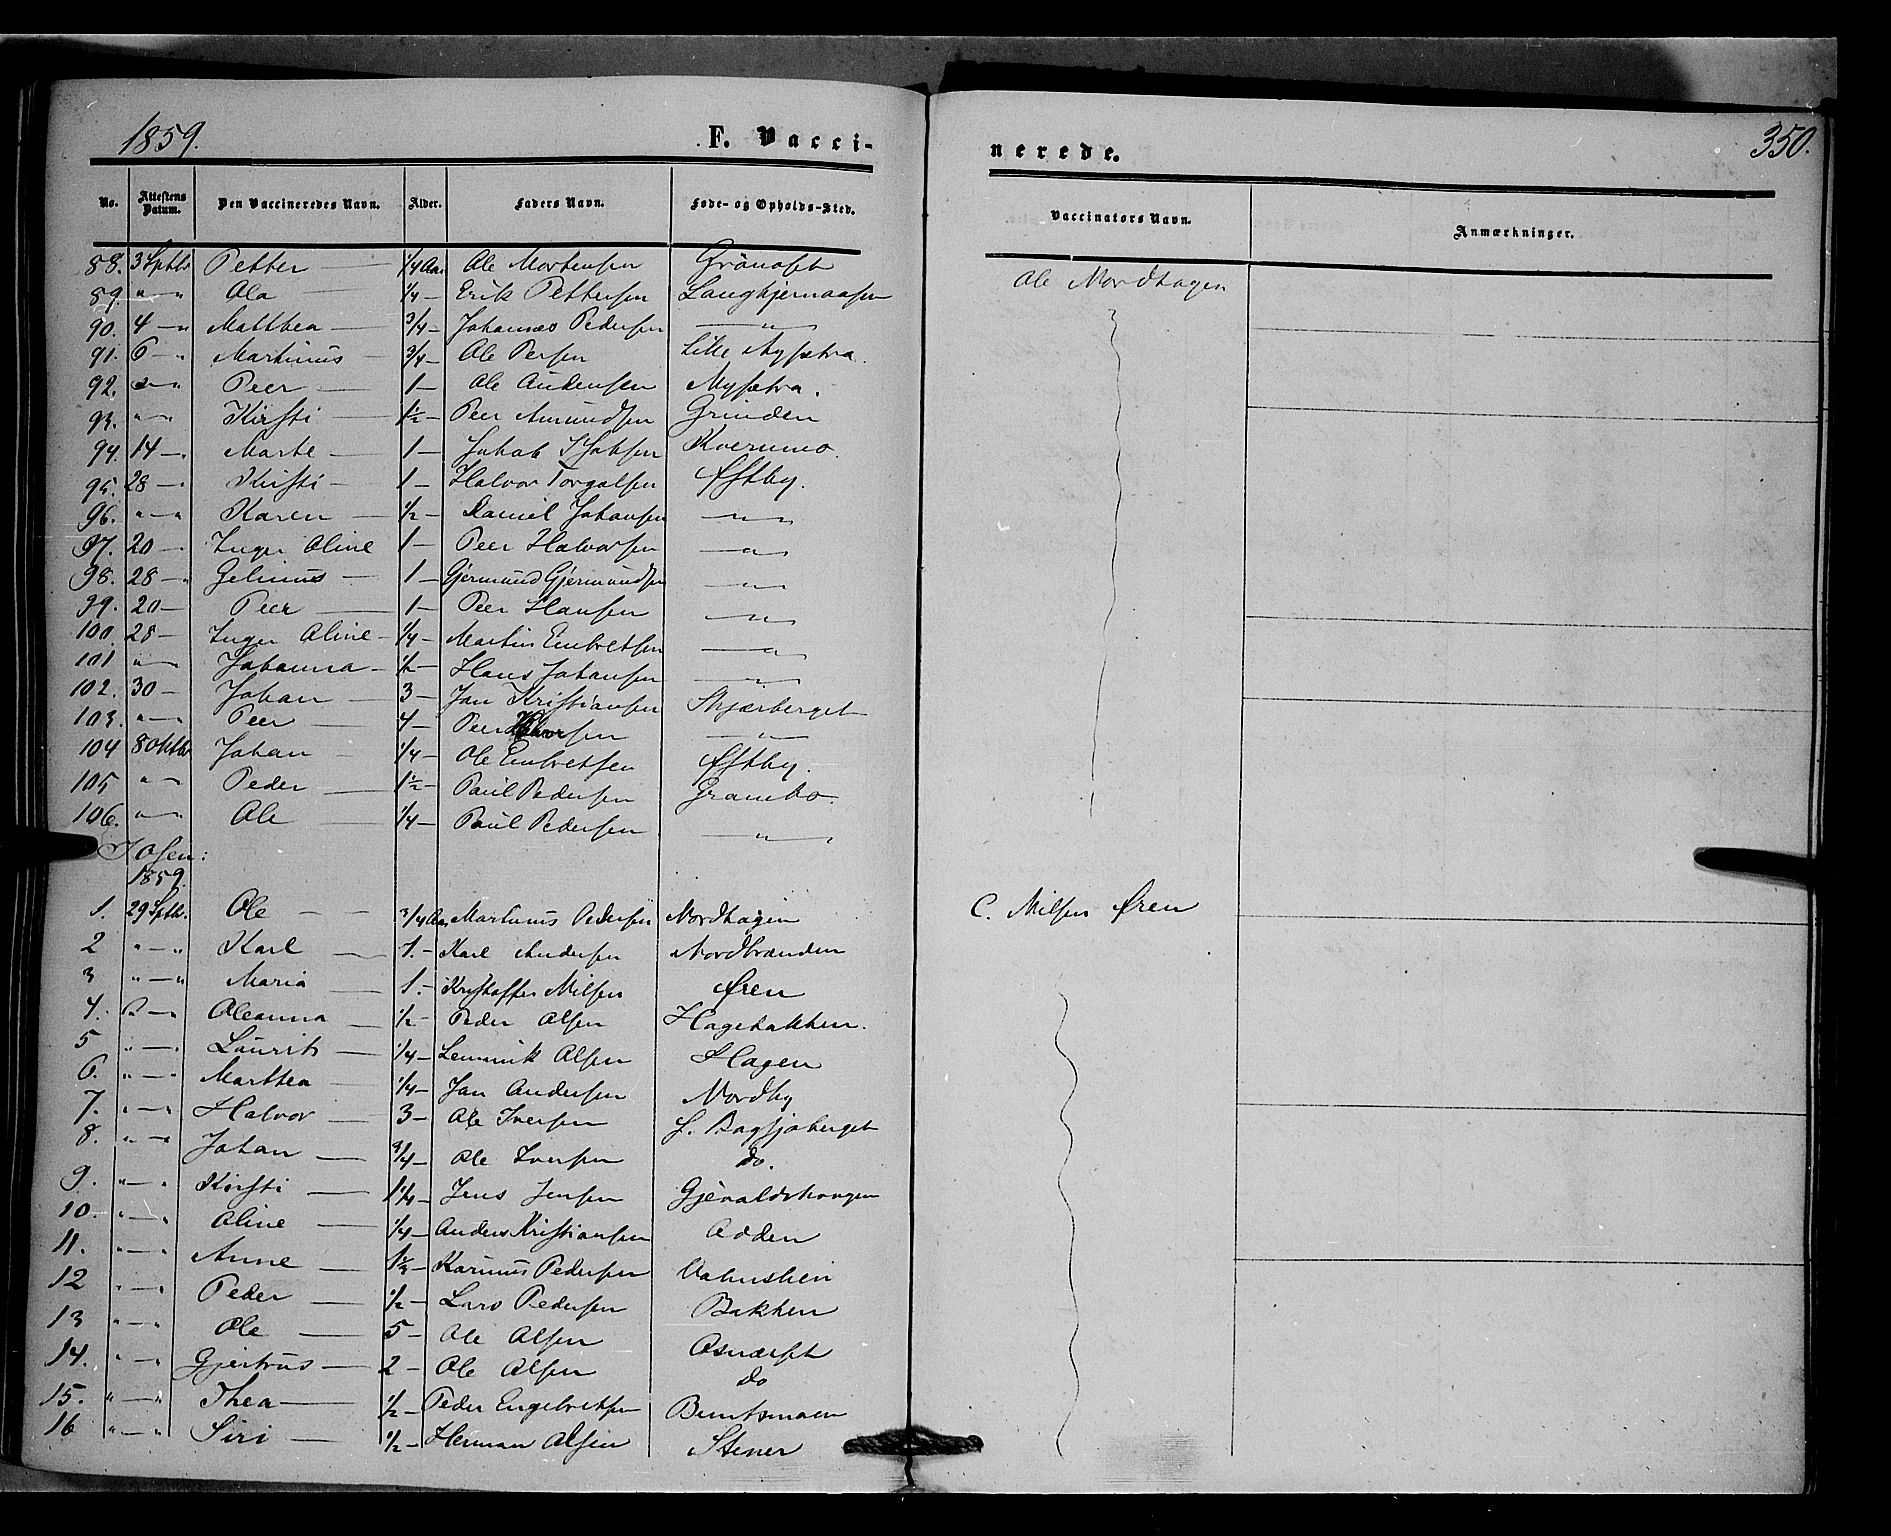 1859.
F. Vacci-
nerede.
350.
No. Attestens Datum. Den Vaccineredes Navn. Alder. Faders Navn. Føde- og Opholds-Sted. Vaccinators Navn. Anmærkninger.
88. 3 Sptbr Petter — 1/4 Aar Ole Mortensen Grönoset Ole Nordhagen
89. " — " Ola 1/4 — Erik Pettersen Langkjernaasen
90. 4 — " Matthea — 3/4 — Johannes Pedersen — " —
91. 6 — " Martinus — 3/4 — Ole Persen Lille Nysætra.
92. " — " Peer — 1 — Ole Andersen Nysætra.
93. " — " Kirsti — 1½ — Peer Amundsen Grinden
94. 14 — " Marte — 1 — Jakob Kvernmo.
95. 28 — " Kirsti — 1 — Halvor Torgalsen Østby.
96. " — " Karen — 1/2 — Daniel Johansen — " —
97. 20 — " Inger Oline 1 — Peer Halvorsen — " —
98. 28 — " Gelinus — 1 — Gjermund Gjermundsen — " —
99. 20 — Peer — 1 — Peer Hansen — " —
100. 28 — Inger Oline — 1/4 — Martin Embretsen — " —
101 " — Johanna — 1/2 — Hans Johansen — " —
102. 30 — Johan — 3 — Jan Kristiansen Skjærberget
103. " — " Peer — 4 — Peer Halvorsen — " —
104 8 Oktbr Johan — 1/4 — Ole Embretsen Østby.
105 " — " Peder — 1½ — Paul Pedersen Grambo.
106. " — " Ole — 1/4 — Paul Pedersen — " —
I Osen:
1859.
1. 29 Sptb. Ole — — 3/4 Aar Martinus Pedersen Nordhagen C. Nilsen Øren
2 " — " Karl — 1. — Karl Andersen Nordbrænden
3 " — " Maria — 1. — Kristoffer Nilsen Øren
4. " — " Oleanna — 1/2 — Peder Olsen Hagebakken.
5 " — " Laurits — 1/4 — Lemmik Olsen Hagen
6. " — " Marthea — 1/4 — Jan Andersen Nordby
7. " — " Halvor — 3 — Ole Iversen L. Bagsjøberget
8. " — " Johan — 3/4 — Ole Iversen Do.
9. " — " Kirsti — 1¼ — Jens Jensen Gjevaldshaugen
10. " — " Oline — 1/4 — Anders Kristiansen Odden
11. " — " Anne — 1½ — Karinus Pedersen Valmstein
12 " — " Peder — 1/2 — Lars Pedersen Bakken
13 " — " Ole — 5 — Ole Olsen Osneset
14. " — " Gjertrus — 2 — Ole Olsen Do
15. " — " Thea — 1/2 — Peder Engebretsen Berntsmoen
16 " — " Siri — 1/2 — Herman Olsen Stener